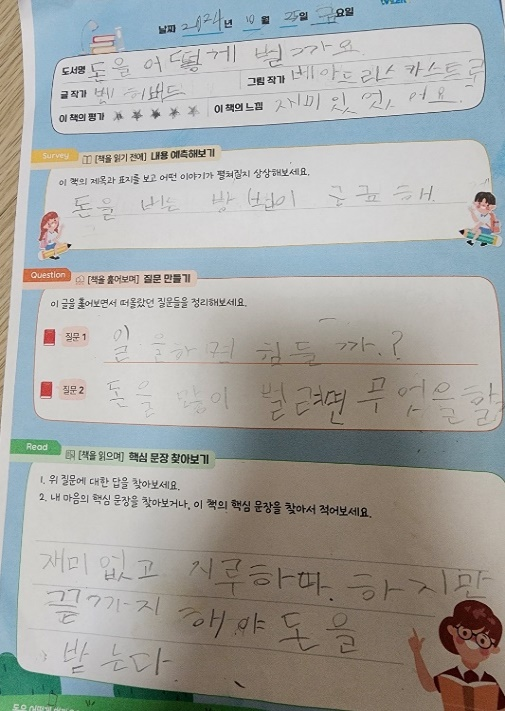 날짜 2024년 10월 25일 금요일
도서명 돈을 어떻게 벌까요
글 작가 벨 그림 작가 베아트리스 카스트로
이 책의 평가 ★ ★ ★ ★ ★ 이 책의 느낌 재미있었어요.
Survey [책을 읽기 전에] 내용 예측해보기
이 책의 제목과 표지를 보고 어떤 이야기가 펼쳐질지 상상해보세요.
돈을 버는 방법이 궁금해.
Question [책을 훑어보며] 질문 만들기
이 글을 훑어보면서 떠올랐던 질문들을 정리해보세요.
질문 1 일을하면 힘들까.?
질문 2 돈을 많이 벌려면 무엇을할
Read [책을 읽으며] 핵심 문장 찾아보기
1. 위 질문에 대한 답을 찾아보세요.
2. 내 마음의 핵심 문장을 찾아보거나, 이 책의 핵심 문장을 찾아서 적어보세요.
재미없고 지루하다. 하지만
끝까지 해야 돈을
받는다.